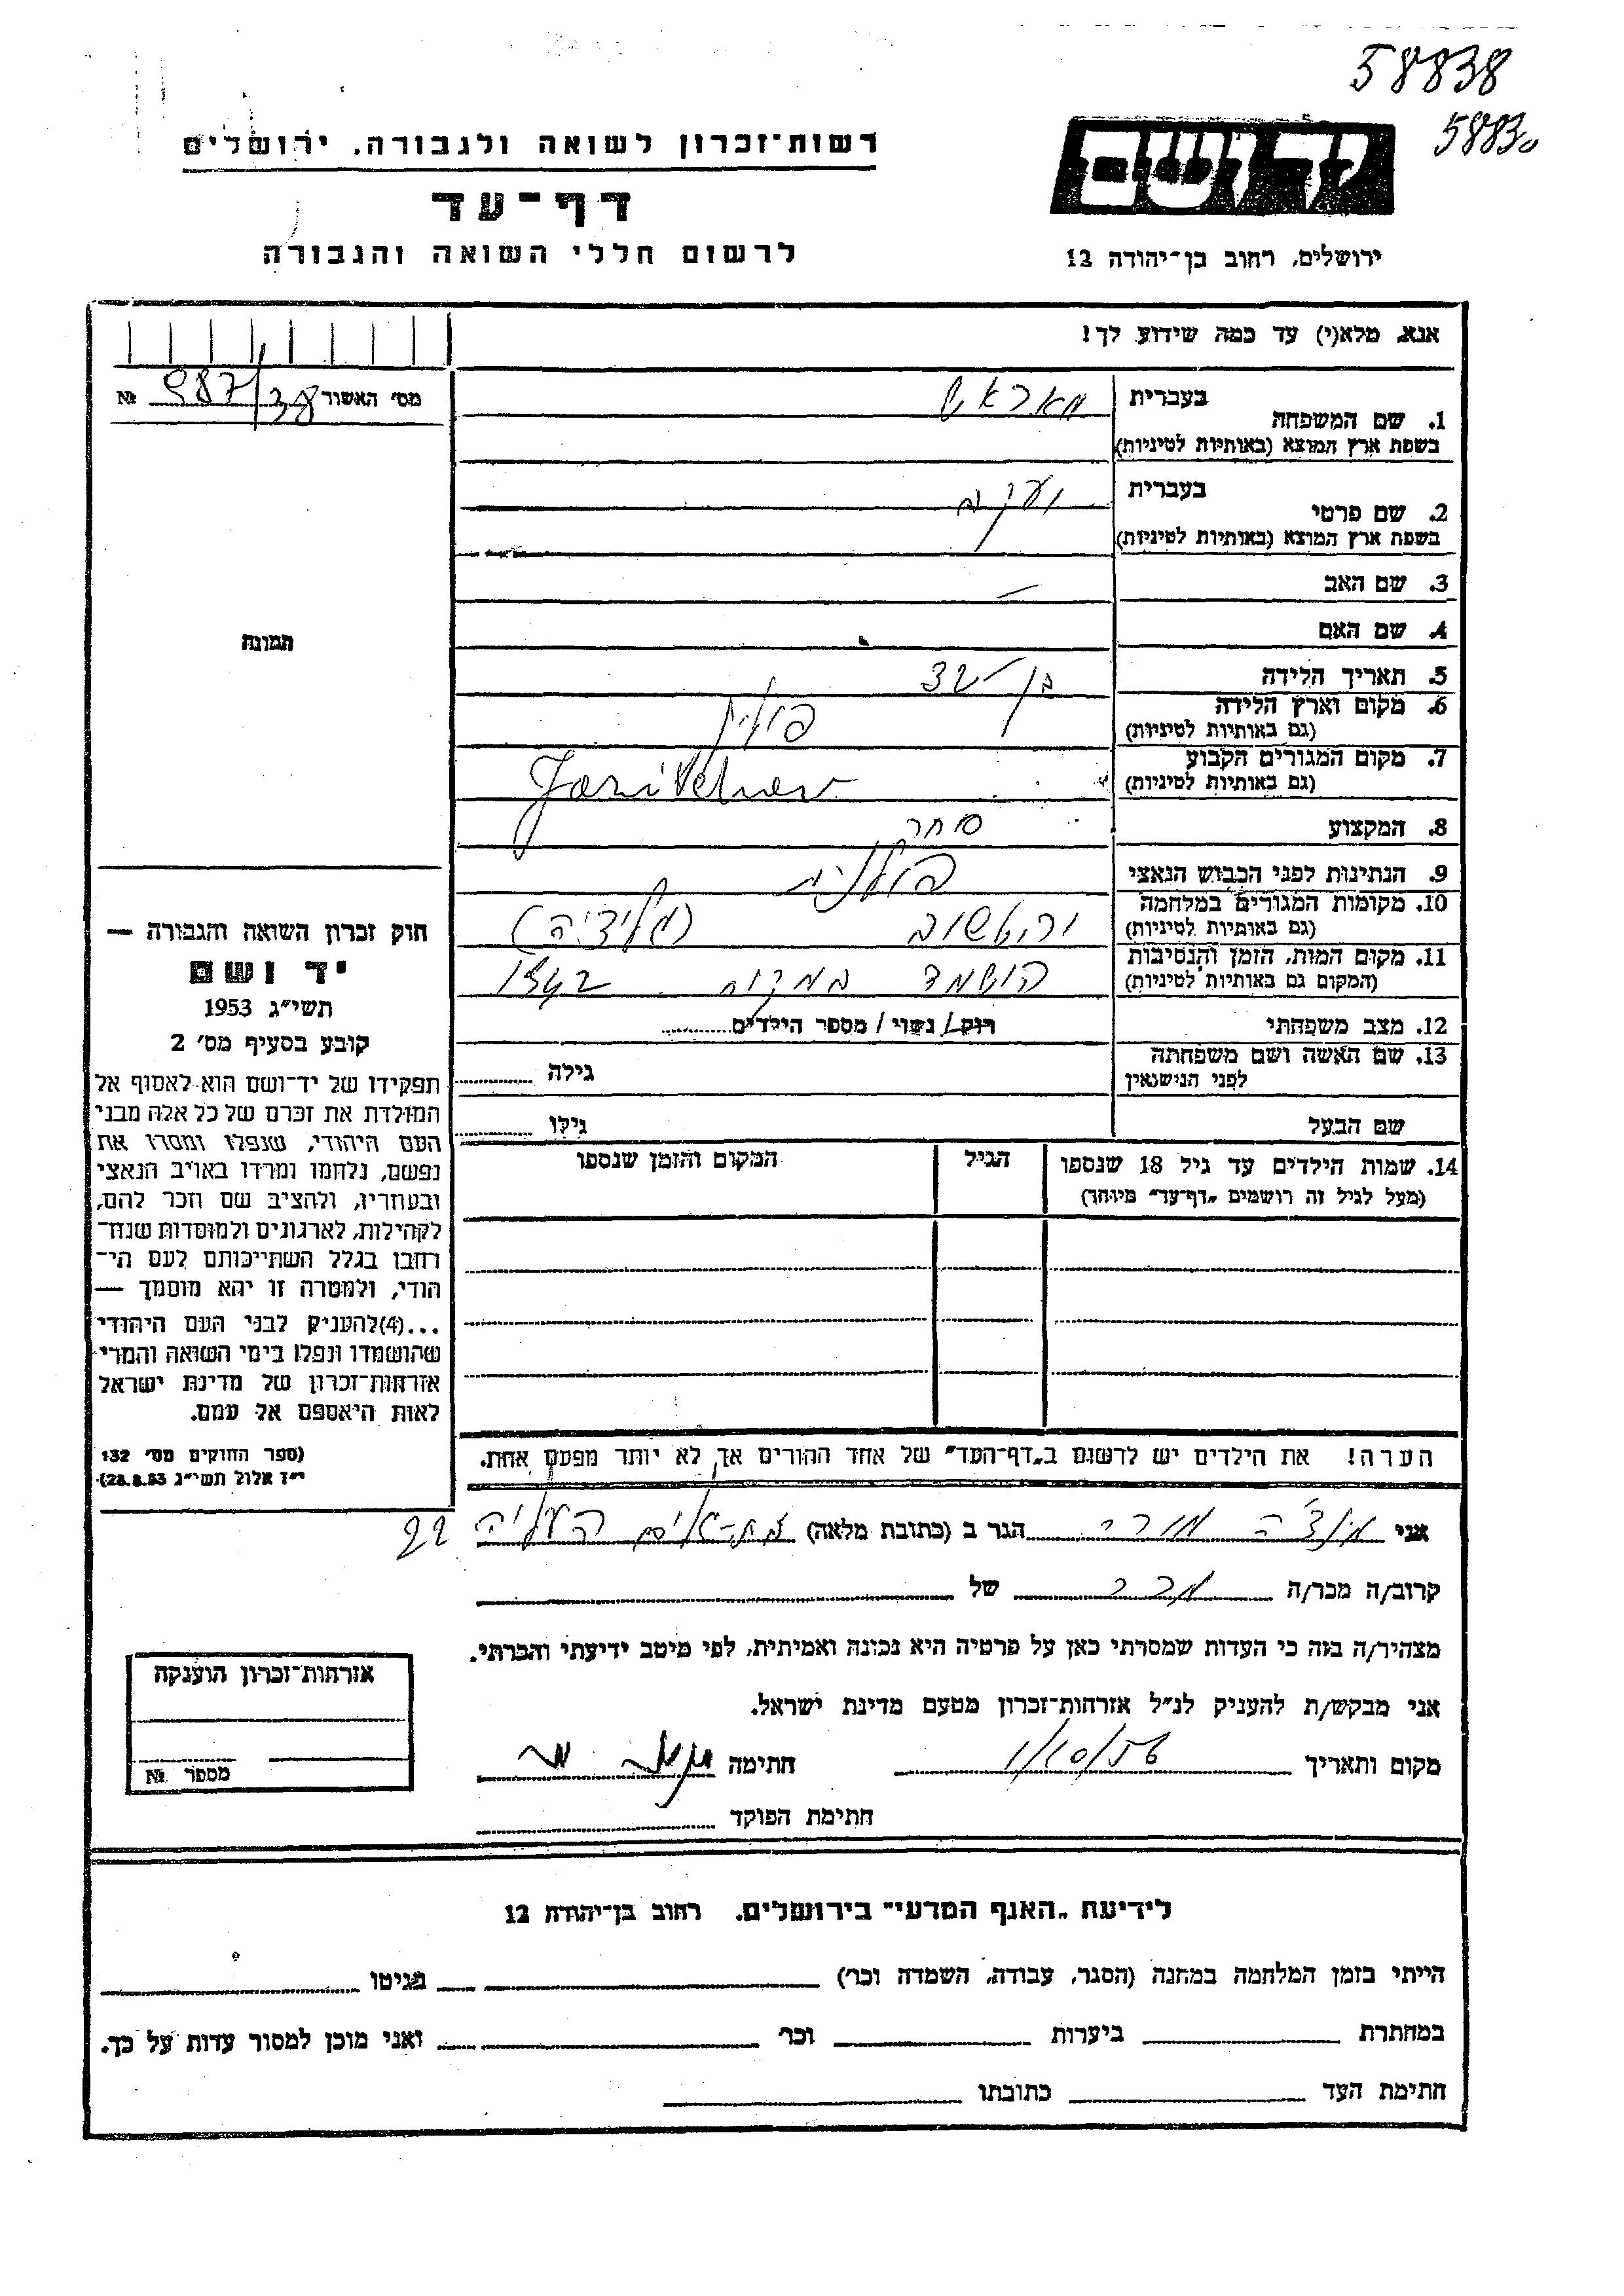 58838
58830
יד ושם
ירושלים, רחוב בן־יהודה 12
רשות־זכרון לשואה ולגבורה, ירושלים
דף־עד
לרשום חללי השואה והגבורה
אנא, מלא(י) עד כמה שידוע לך!
מס' האשור 987/38 №
1. שם המשפחה בעברית
בשפת ארץ המוצא (באותיות לטיניות)
2. שם פרטי בעברית יעקב
בשפת ארץ המוצא (באותיות לטיניות)
3. שם האב —
4. שם האם
5. תאריך הלידה בן־32
6. מקום וארץ הלידה פולין
(גם באותיות לטיניות)
7. מקום המגורים הקבוע
(גם באותיות לטיניות)
8. המקצוע סוחר
9. הנתינות לפני הכבוש הנאצי פולנית
10. מקומות המגורים במלחמה (גליציה)
(גם באותיות לטיניות)
11. מקום המות, הזמן והנסיבות הושמד במקום 1942
(המקום גם באותיות לטיניות)
12. מצב משפחתי רוק/ נשוי/ מספר הילדים
13. שם האשה ושם משפחתה
לפני הנישואין גילה
שם הבעל גילו
14. שמות הילדים עד גיל 18 שנספו הגיל המקום והזמן שנספו
(מעל לגיל זה רושמים "דף־עד" מיוחד)
הערה! את הילדים יש לרשום ב"דף־העד" של אחד ההורים אך לא יותר מפעם אחת.
תמונה
חוק זכרון השואה והגבורה —
יד ושם
תשי"ג 1953
קובע בסעיף מס' 2
תפקידו של יד־ושם הוא לאסוף אל
המולדת את זכרם של כל אלה מבני
העם היהודי, שנפלו ומסרו את
נפשם, נלחמו ומרדו באויב הנאצי
ובעוזריו, ולהציב שם וזכר להם,
לקהילות, לארגונים ולמוסדות שנח־
רבו בגלל השתייכותם לעם הי־
הודי, ולמטרה זו יהא מוסמך —
...(4)להעניק לבני העם היהודי
שהושמדו ונפלו בימי השואה והמרי
אזרחות־זכרון של מדינת ישראל
לאות היאספם אל עמם.
(ספר החוקים מס' 132
י"ד אלול תשי"ג 28.8.53)
אני הגר ב (כתובת מלאה) העליה 22
קרוב/ה מכר/ה מכר של
מצהיר/ה בזה כי העדות שמסרתי כאן על פרטיה היא נכונה ואמיתית, לפי מיטב ידיעתי והכרתי.
אני מבקש/ת להעניק לנ"ל אזרחות־זכרון מטעם מדינת ישראל.
מקום ותאריך 1/10/56 חתימה
חתימת הפוקד
אזרחות־זכרון הוענקה
מספר №
לידיעת "האגף המדעי" בירושלים. רחוב בן־יהודה 12
הייתי בזמן המלחמה במחנה (הסגר, עבודה, השמדה וכר') בגיטו
במחתרת ביערות וכר' ואני מוכן למסור עדות על כך.
חתימת העד כתובתו